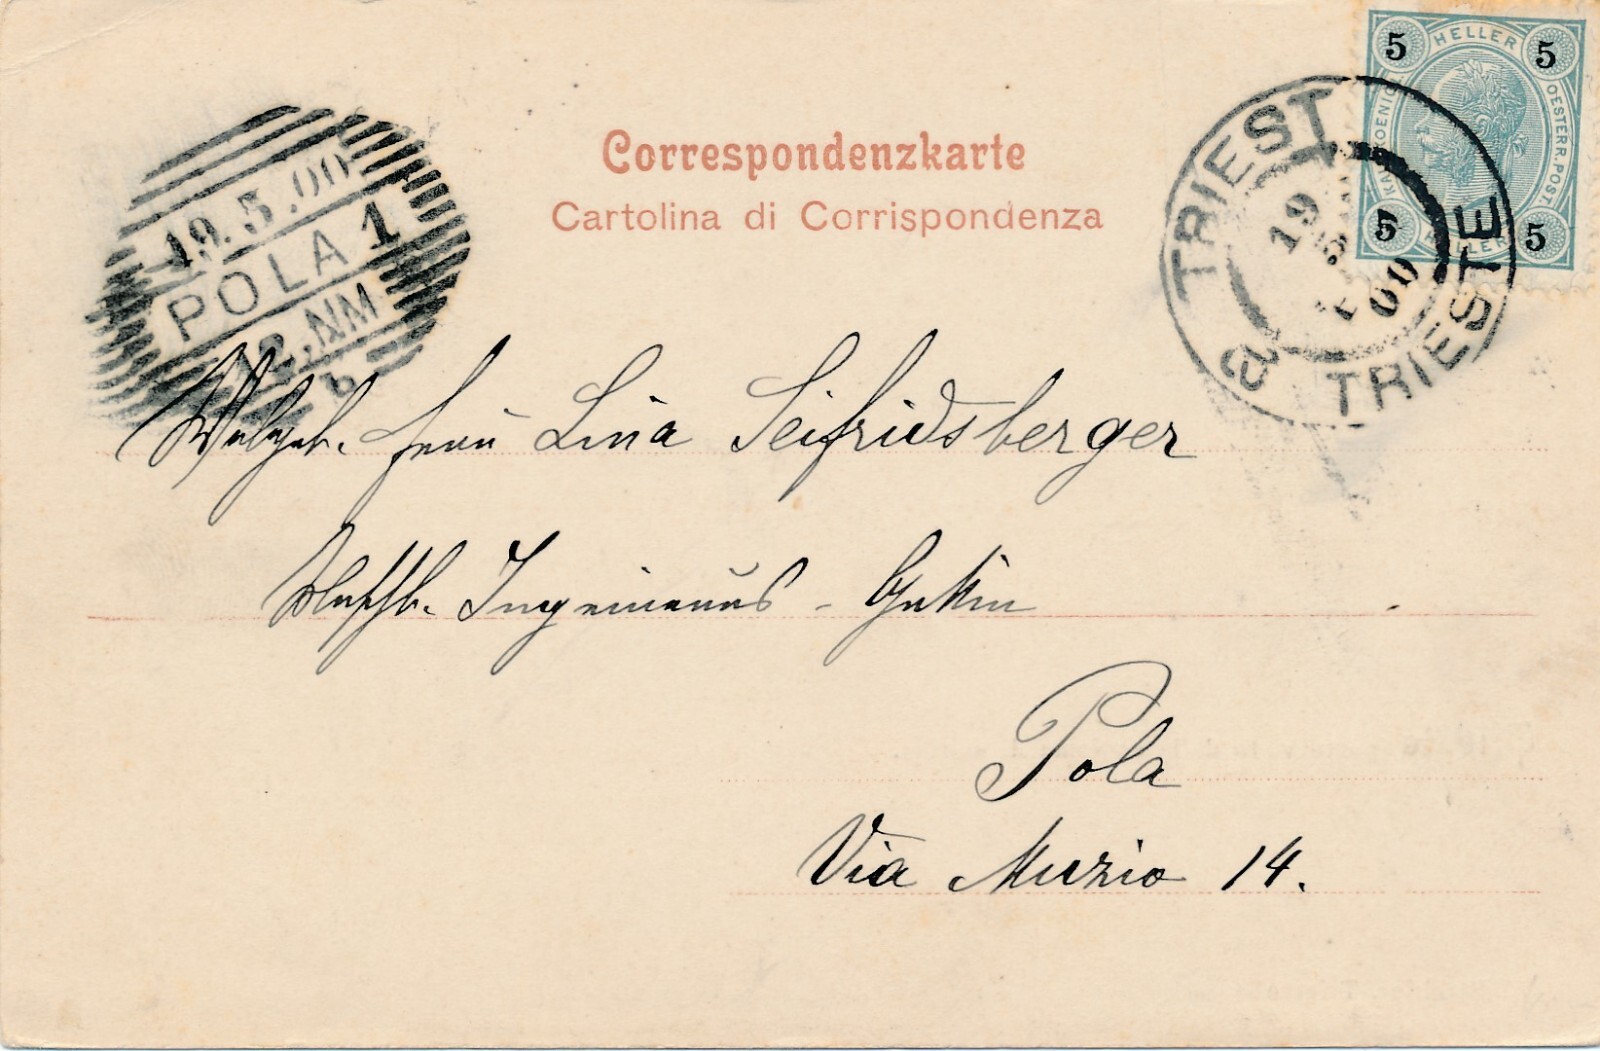 5 HELLER 5
KAIS. KOENIGL. OESTERR. POST.
5 HELLER 5
TRIEST
19 5 00
a TRIESTE
19.5.00
POLA 1
2.NM
b
Correspondenzkarte
Cartolina di Corrispondenza
Wohlgeb. Frau Lina Seifridsberger
Ingenieurs - Gattin
Pola
Via Muzio 14.